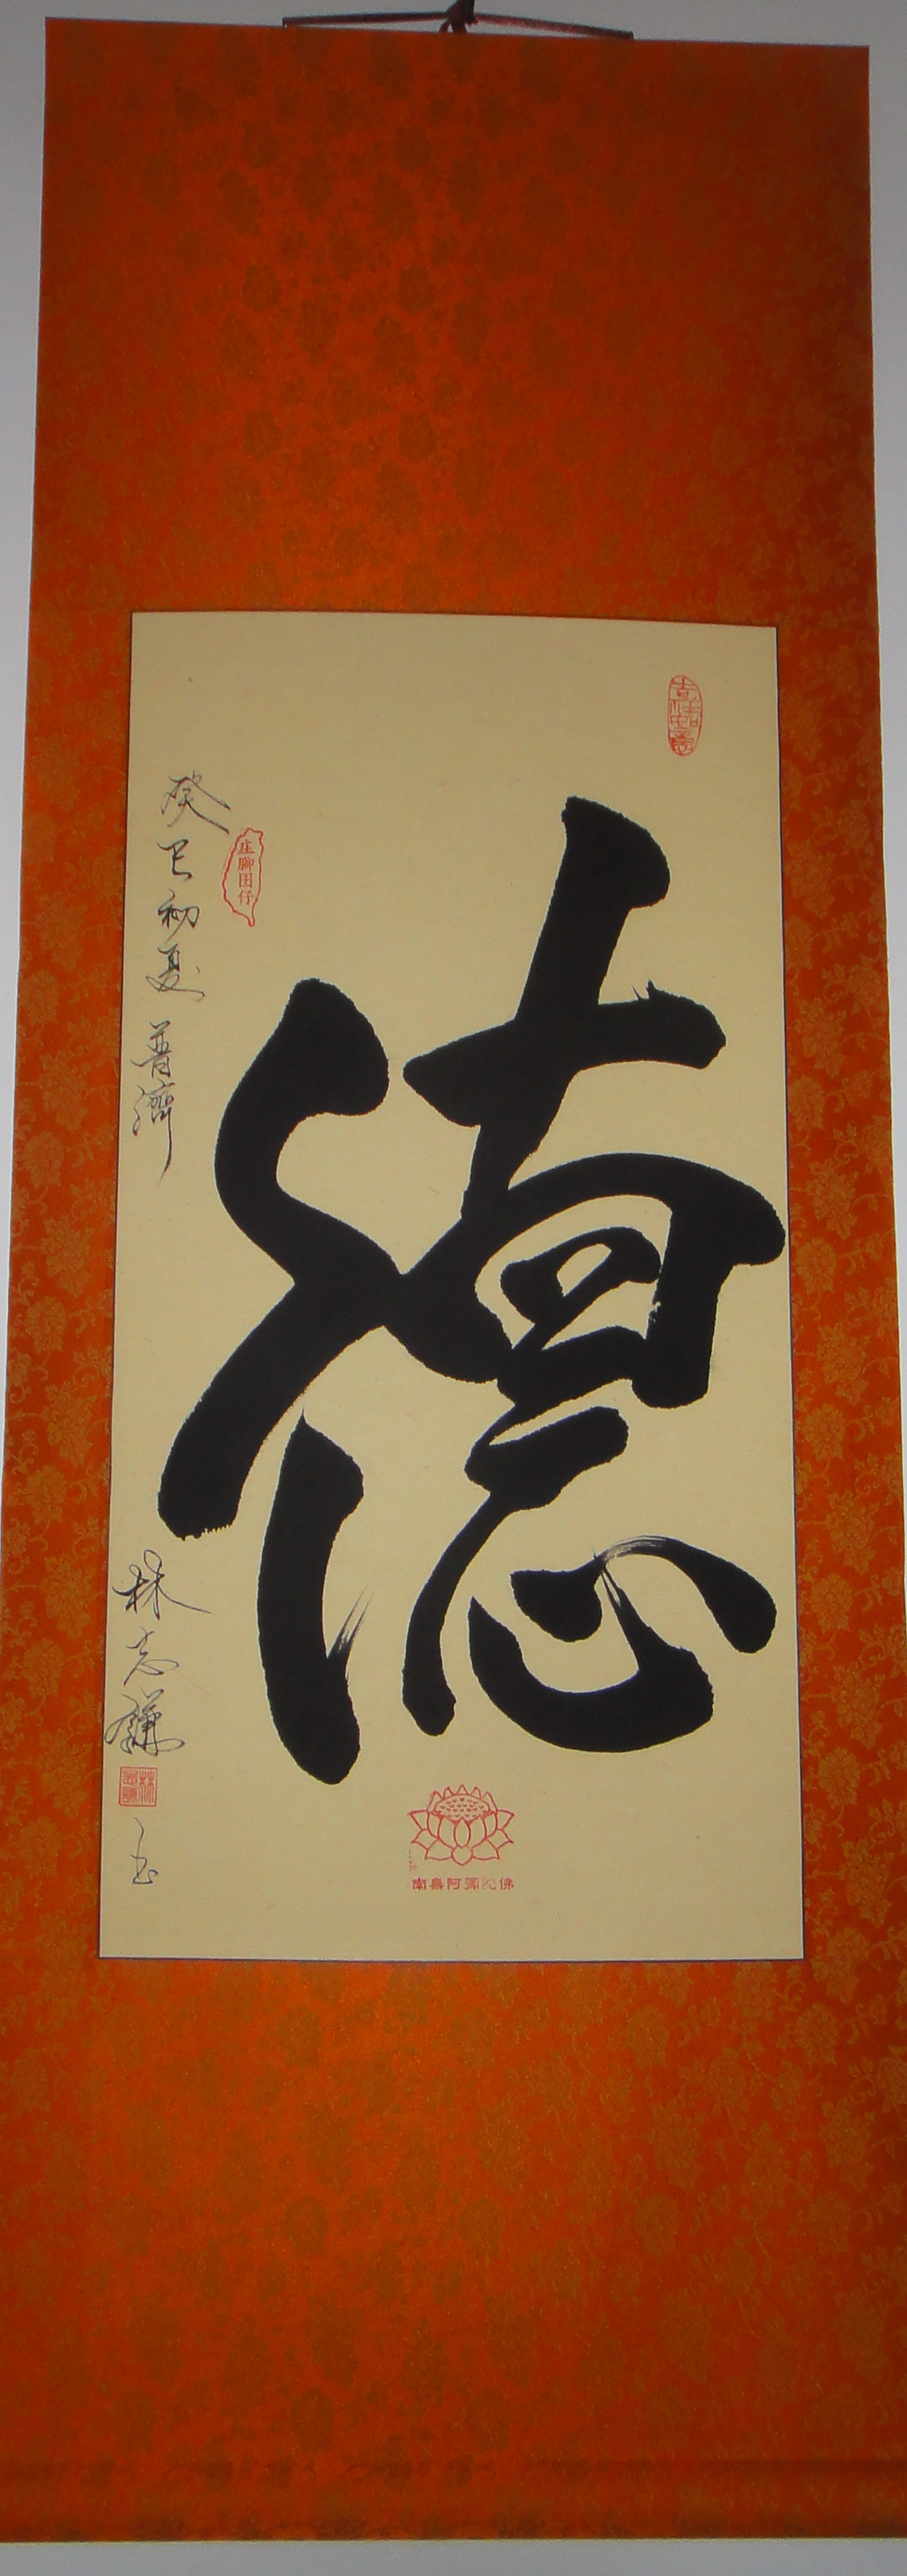 德
癸巳初夏 普濟
庄腳囝仔
林志謙
書
南無阿彌陀佛